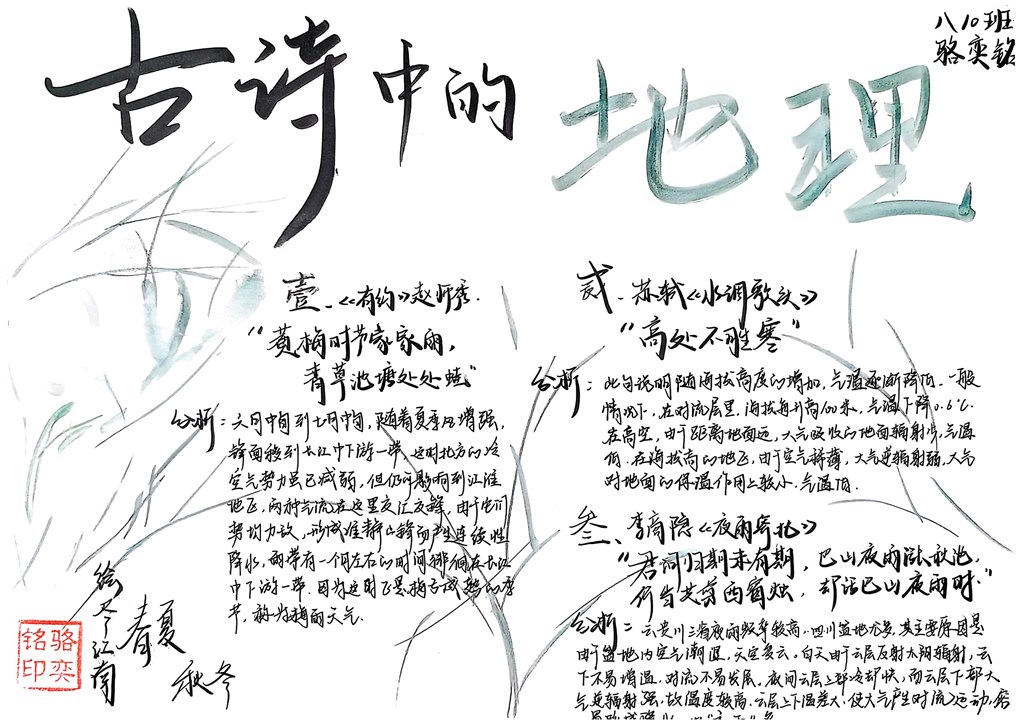 古诗中的
地理
八10班
骆奕铭
壹、《有约》赵师秀.
“黄梅时节家家雨,
青草池塘处处蛙”
分析: 六月中旬到七月中旬, 随着夏季风增强,
锋面移到长江中下游一带. 这时北方的冷
空气势力虽已减弱, 但仍可影响到江淮
地区, 两种气流在这里交汇交锋, 由于它们
势均力敌, 形成准静止锋而产生连续性
降水, 雨带有一个月左右的时间徘徊在长江
中下游一带. 因为这时正是梅子成熟的季
节, 称为梅雨天气.
贰、苏轼《水调歌头》
“高处不胜寒”
分析: 此句说明随海拔高度的增加, 气温逐渐降低. 一般
情况下, 在对流层里, 海拔每升高100米, 气温下降0.6℃.
在高空, 由于距离地面远, 大气吸收的地面辐射少, 气温
低. 在海拔高的地区, 由于空气稀薄, 大气逆辐射弱, 大气
对地面的保温作用上较小. 气温低.
叁、李商隐《夜雨寄北》
“君问归期未有期, 巴山夜雨涨秋池.
何当共剪西窗烛, 却话巴山夜雨时.”
分析: 云贵川三省夜雨频率较高. 四川盆地尤多, 其主要原因是
由于盆地内空气潮湿, 天空多云. 白天由于云层反射太阳辐射, 云
下不易增温, 对流不易发展. 夜间云层上部冷却快, 而云层下部大
气逆辐射强, 故温度较高. 云层上下温差大, 使大气产生对流运动, 容
绘尽了江南
春夏
秋冬
骆奕
铭印